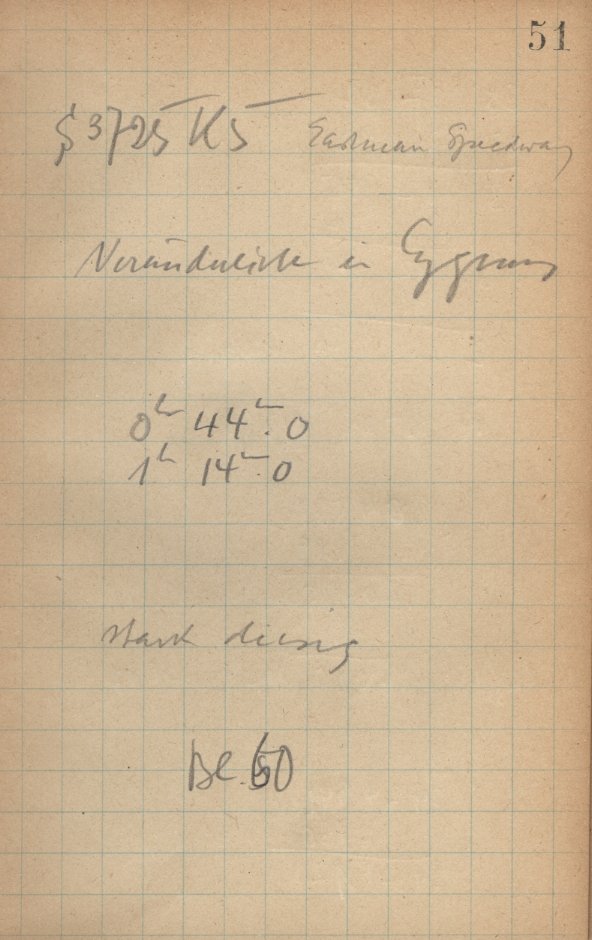 51
S 3725 K5 Eastman Speedway
Veränderliche in Cygnus
0h 44m.0
1h 14m.0
stark diesig
Bl. 60